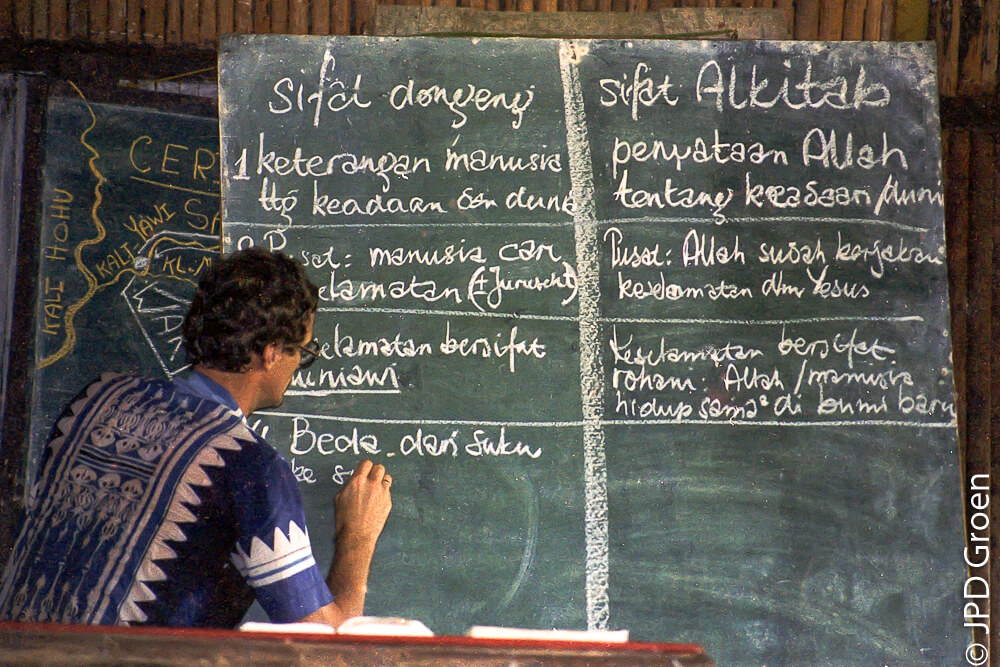 Sifat dongeng
1 keterangan manusia
ttg keadaan dan dunia
Pusat: manusia cari
elamatan (± Juruscht)
elamatan bersifat
uniawi
4 Beda dari suku
ke s
sifat Alkitab
penyataan Allah
tentang keadaan/duni
Pusat: Allah sudah kerjakan
keselamatan dlm Yesus
keselamatan bersifat
rohani: Allah/manusia
hidup sama² di bumi baru
CER
SA
KALI HOHU
KALI-YAWI
KL-
WAR
© JPD Groen